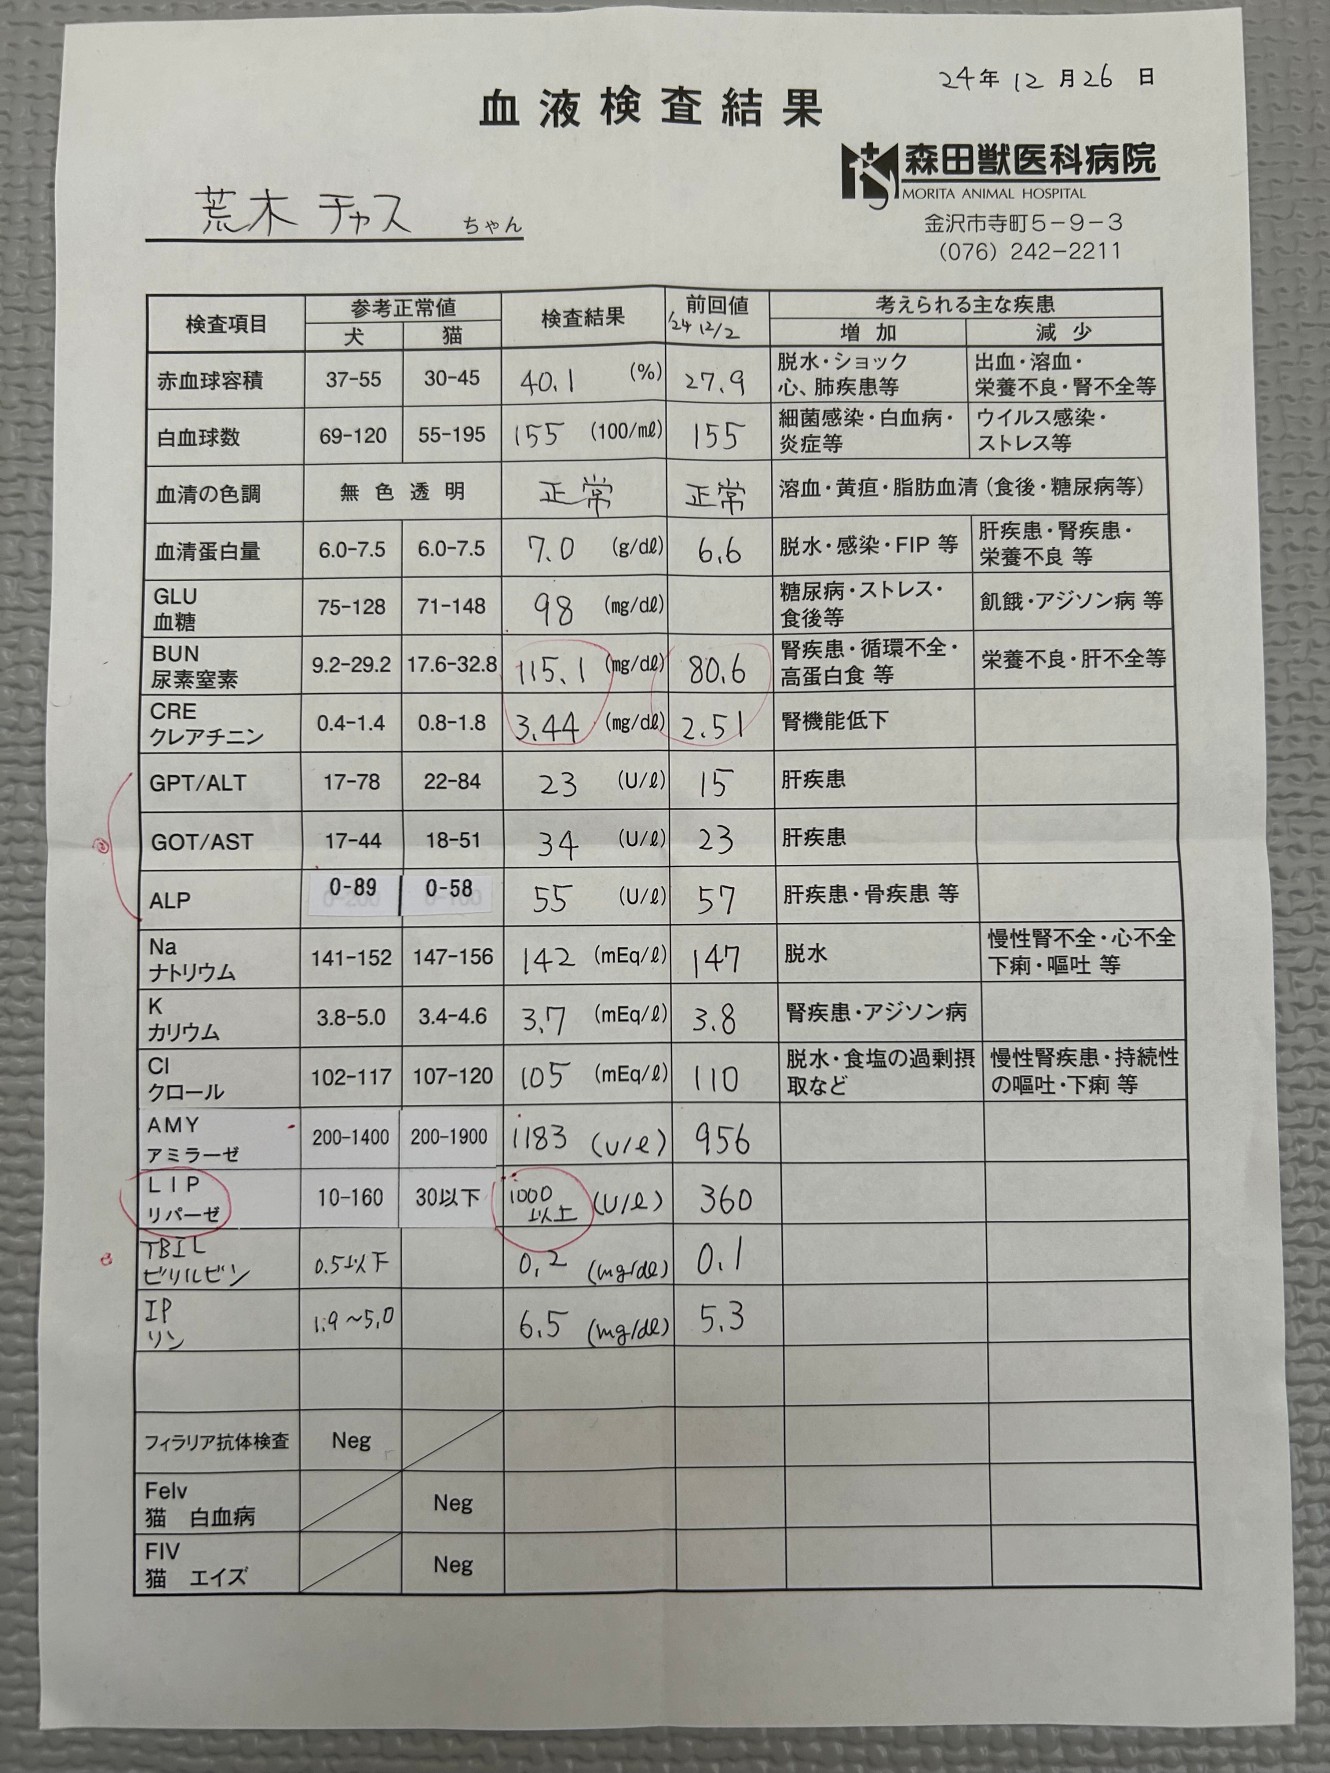 24年 12月26日
血液検査結果
森田獣医科病院
MORITA ANIMAL HOSPITAL
荒木 チャス ちゃん
金沢市寺町5-9-3
(076) 242-2211
検査項目 参考正常値 検査結果 前回値 考えられる主な疾患
犬 猫 '24 12/2 増加 減少
赤血球容積 37-55 30-45 40.1 (%) 27.9 脱水・ショック 心、肺疾患等 出血・溶血・ 栄養不良・腎不全等
白血球数 69-120 55-195 155 (100/mℓ) 155 細菌感染・白血病・ 炎症等 ウイルス感染・ ストレス等
血清の色調 無色透明 正常 正常 溶血・黄疸・脂肪血清(食後・糖尿病等)
血清蛋白量 6.0-7.5 6.0-7.5 7.0 (g/dℓ) 6.6 脱水・感染・FIP 等 肝疾患・腎疾患・ 栄養不良 等
GLU 血糖 75-128 71-148 98 (mg/dℓ) 糖尿病・ストレス・ 食後等 飢餓・アジソン病 等
BUN 尿素窒素 9.2-29.2 17.6-32.8 115.1 (mg/dℓ) 80.6 腎疾患・循環不全・ 高蛋白食 等 栄養不良・肝不全等
CRE クレアチニン 0.4-1.4 0.8-1.8 3.44 (mg/dℓ) 2.51 腎機能低下
GPT/ALT 17-78 22-84 23 (U/ℓ) 15 肝疾患
GOT/AST 17-44 18-51 34 (U/ℓ) 23 肝疾患
ALP 0-89 0-58 55 (U/ℓ) 57 肝疾患・骨疾患 等
Na ナトリウム 141-152 147-156 142 (mEq/ℓ) 147 脱水 慢性腎不全・心不全 下痢・嘔吐 等
K カリウム 3.8-5.0 3.4-4.6 3.7 (mEq/ℓ) 3.8 腎疾患・アジソン病
Cl クロール 102-117 107-120 105 (mEq/ℓ) 110 脱水・食塩の過剰摂 取など 慢性腎疾患・持続性 の嘔吐・下痢 等
AMY アミラーゼ 200-1400 200-1900 1183 (U/ℓ) 956
LIP リパーゼ 10-160 30以下 1000 以上 (U/ℓ) 360
TBIL ビリルビン 0.5以下 0.2 (mg/dℓ) 0.1
IP リン 1.9~5.0 6.5 (mg/dℓ) 5.3
フィラリア抗体検査 Neg
Felv 猫 白血病 Neg
FIV 猫 エイズ Neg